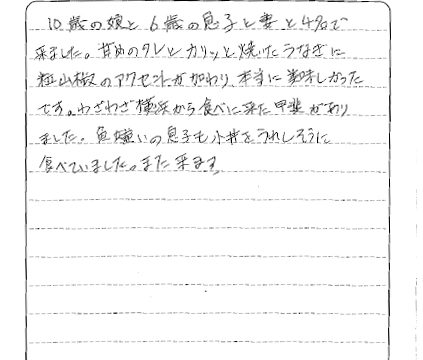 10歳の娘と6歳の息子と妻と4名で
来ました。甘めのタレとカリッと焼いたうなぎに
粒山椒のアクセントが加わり、本当に美味しかった
です。わざわざ横浜から食べに来た甲斐があり
ました。魚嫌いの息子も小丼をうれしそうに
食べていました。また来ます。